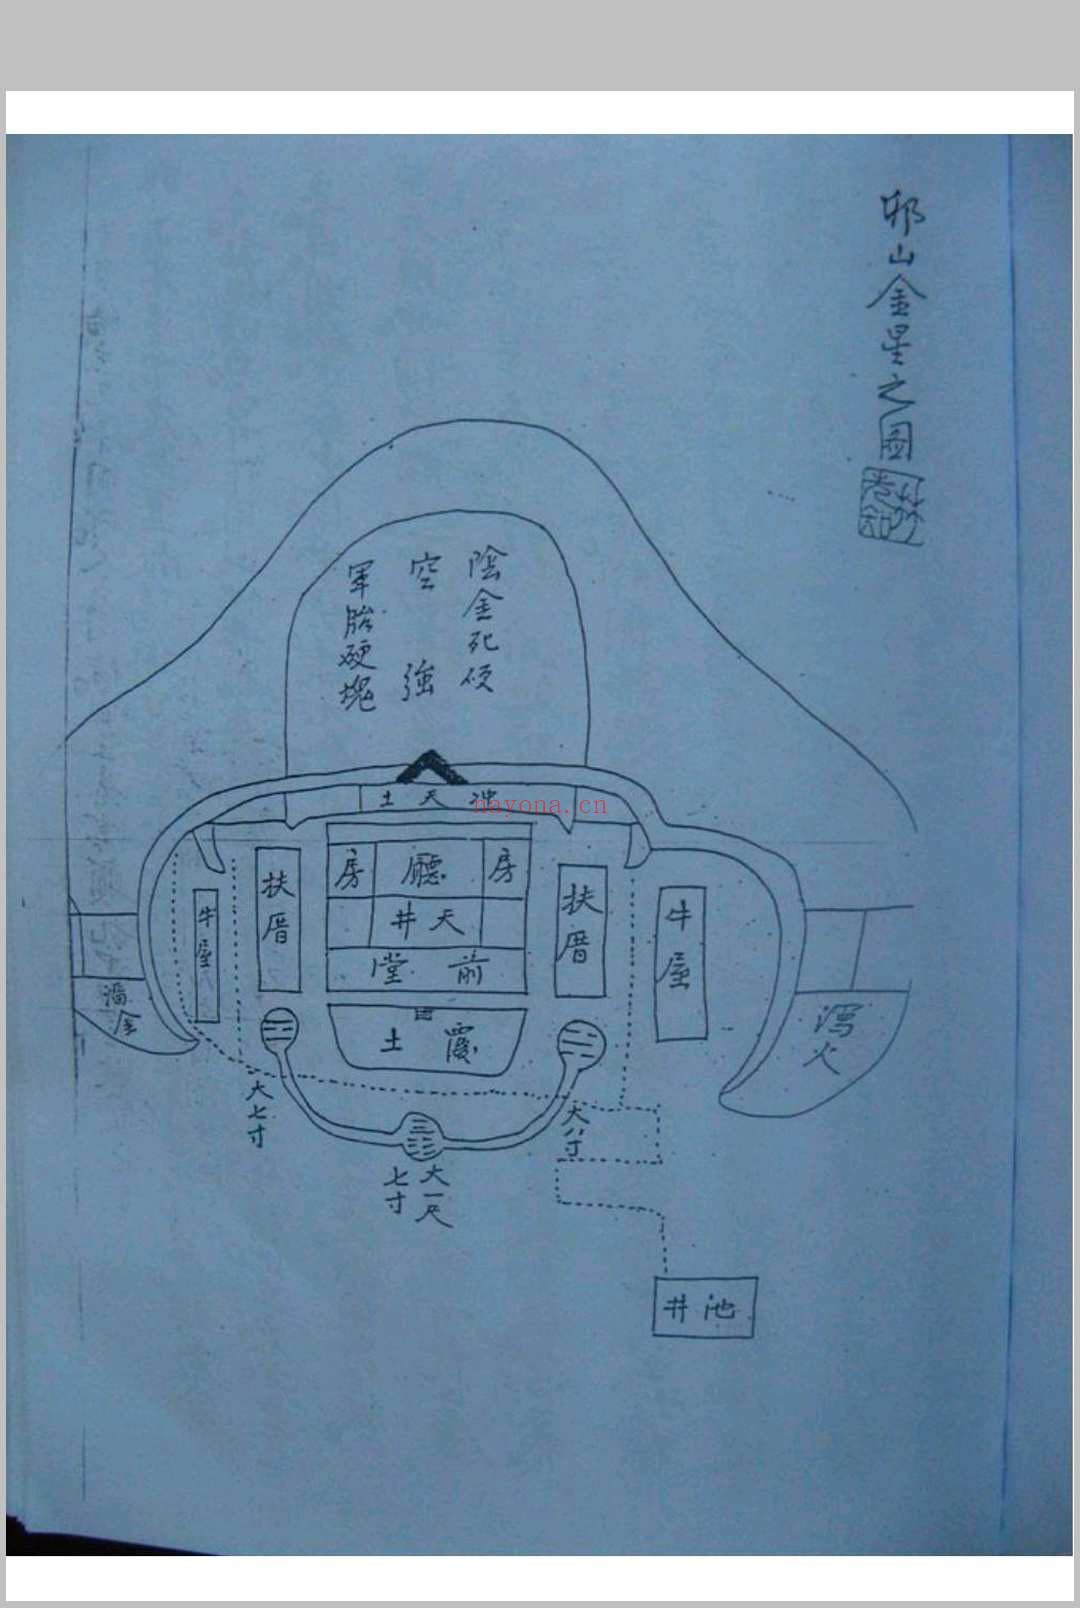 邪山金星之圖
陰金死硬
空強
軍胎硬塊
冲天土
nayona.cn
房
廳
房
天井
前堂
扶厝
扶厝
牛屋
牛屋
土
潘金
瀉火
大七寸
大一尺
七寸
大八寸
池井